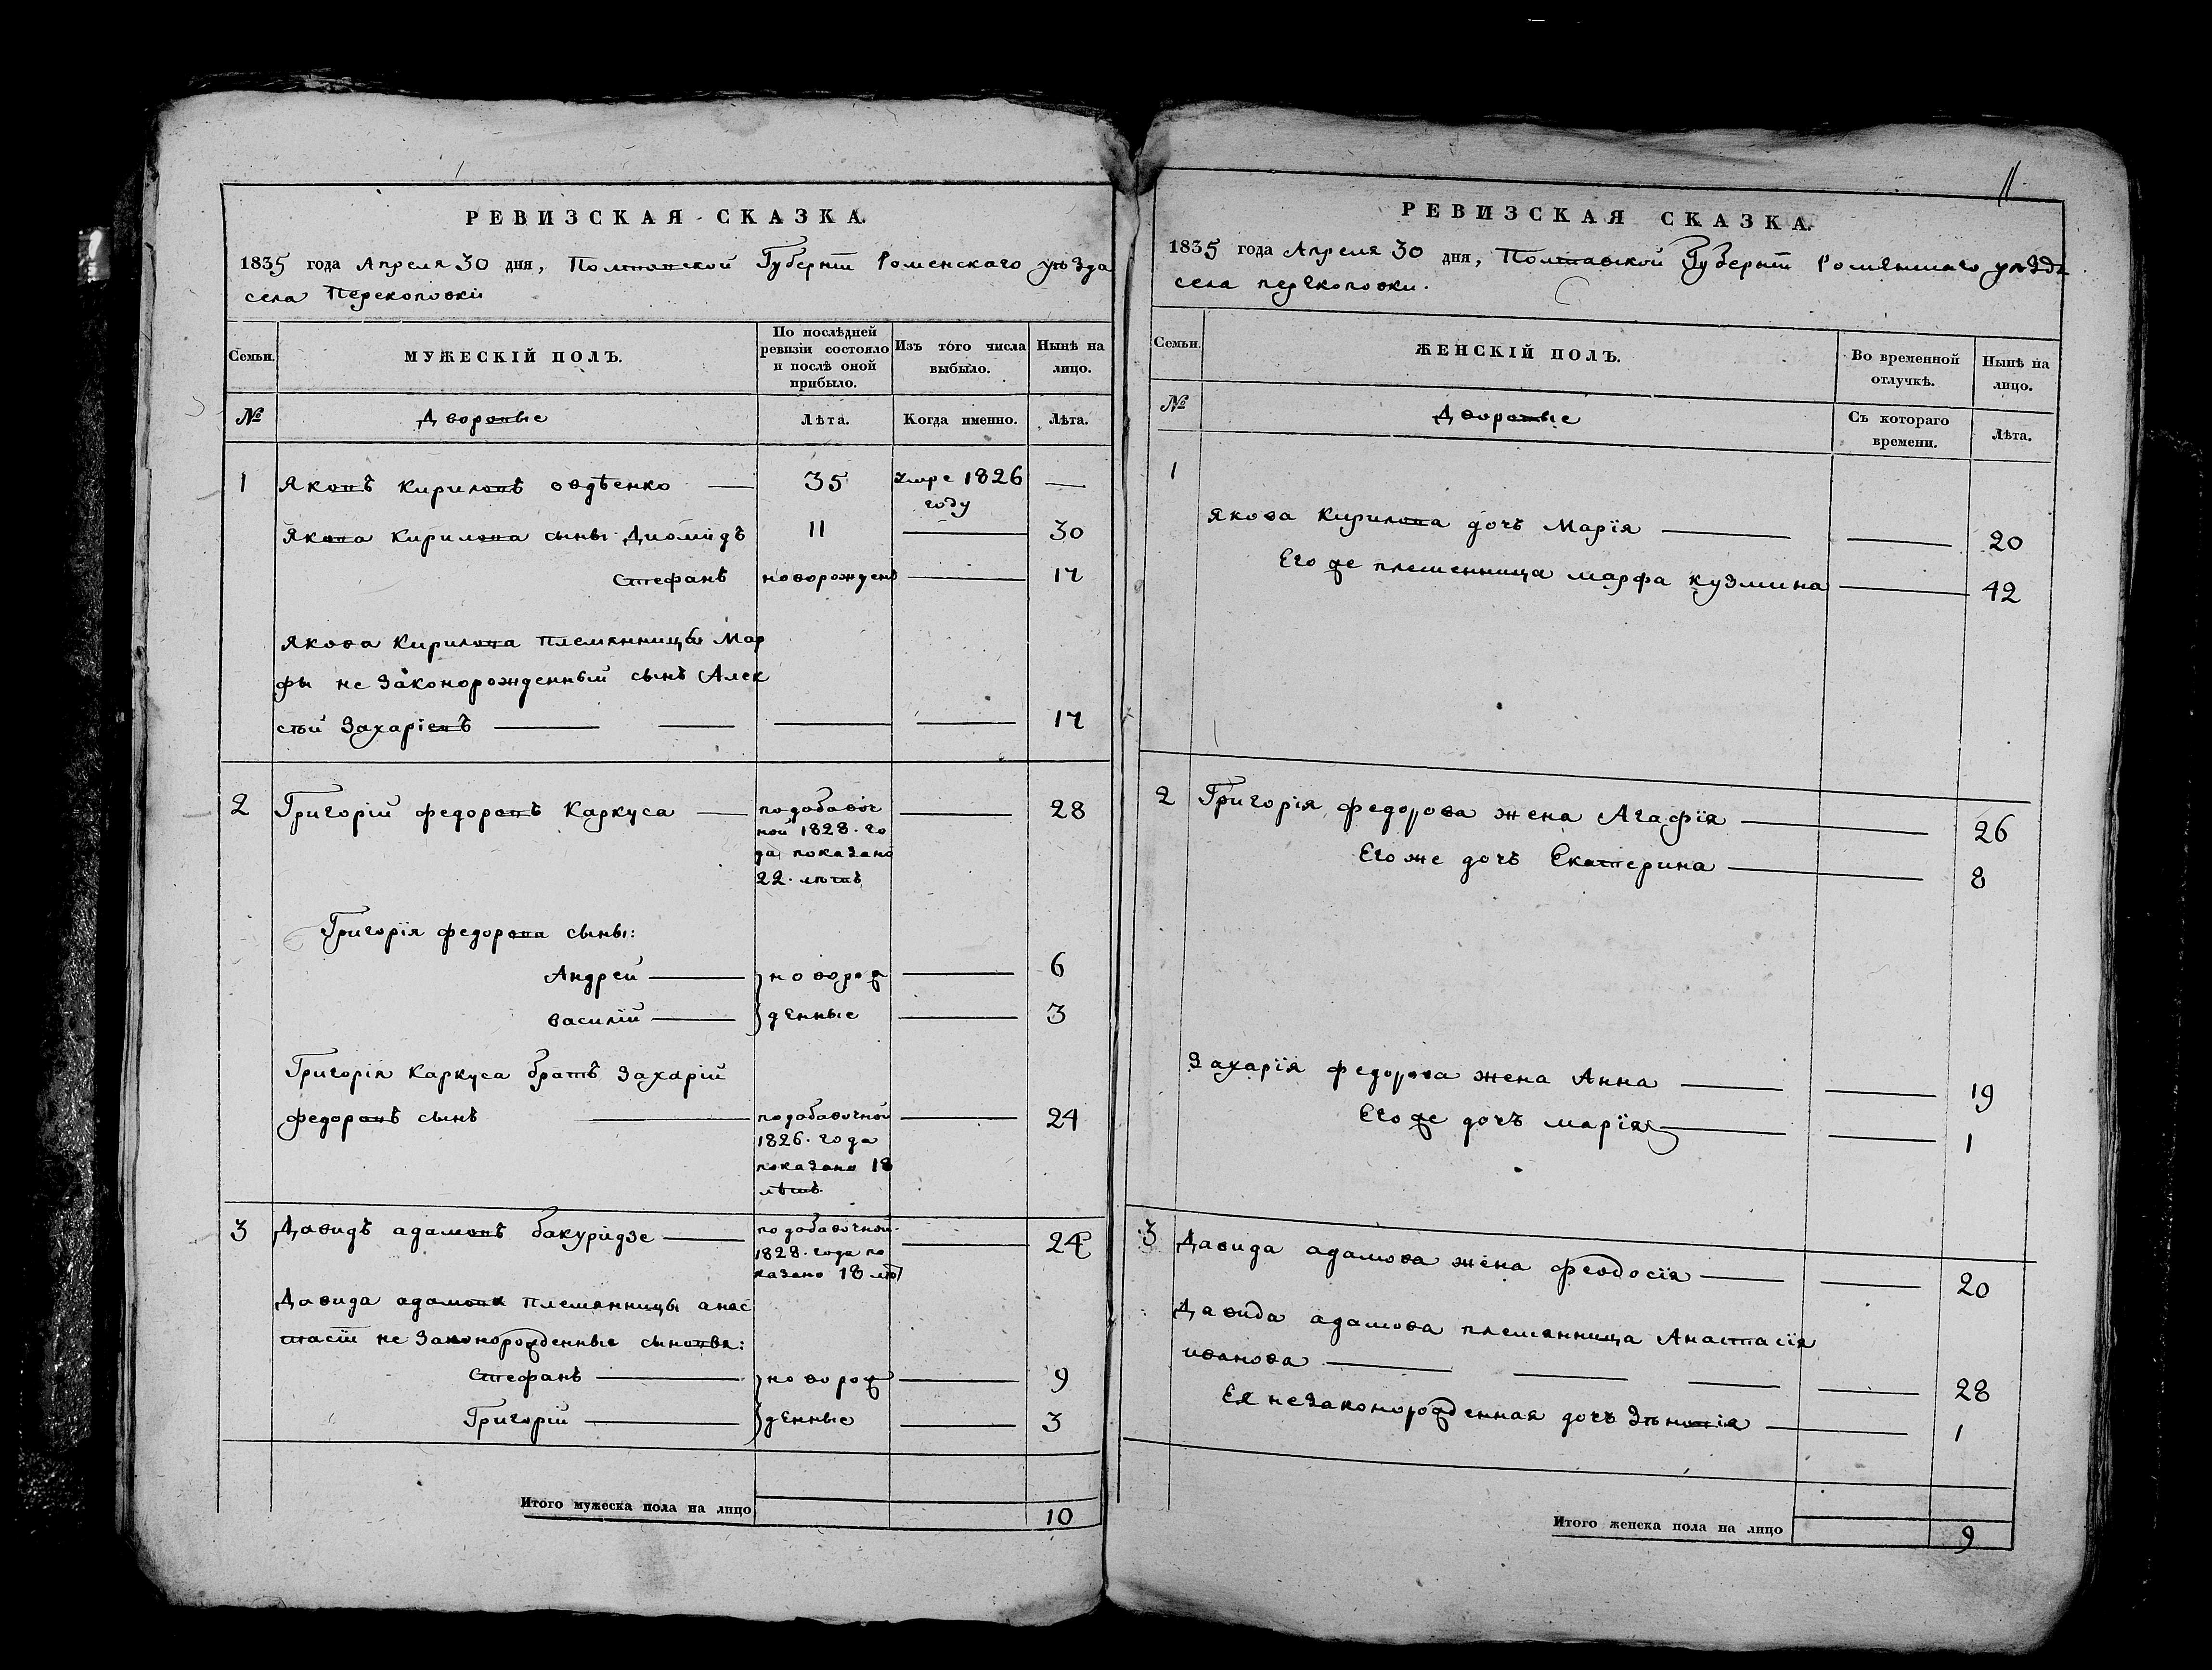 РЕВИЗСКАЯ СКАЗКА.
1835 года Апреля 30 дня, Полтавской Губерніи Роменскаго уѣзда
села Перекоповки
Семьи.
МУЖЕСКІЙ ПОЛЪ.
По послѣдней ревизіи состояло и послѣ оной прибыло.
Изъ того числа выбыло.
Нынѣ на лицо.
№ Дворовые Лѣта. Когда именно. Лѣта.
1 Яковъ Кириловъ овдѣенко — 35 умре 1826 —
году
Якова Кирилова сыны Диомидъ 11 — 30
Стефанъ новорожденъ — 17
Якова Кирилова племянницы Мар
фы не законорожденный сынъ Алек
сѣй Захаріевъ — — — — 17
2 Григорій федоровъ Каркуса — по добавоч — 28
ной 1828. го
да показано
22. лѣтъ
Григорія федорова сыны:
Андрей — новорож — 6
василій — денные — 3
Григорія Каркуса братъ Захарій
федоровъ сынъ — по добавочной — 24
1826. года
показано 18
лѣтъ
3 Давидъ адамовъ бакуридзе — по добавочной — 24
1828. года по
казано 18 лѣт
Давида адамова племянницы анас
тасіи не законорожденные сыновья:
Стефанъ — новорож — 9
Григорій — денные — 3
Итого мужеска пола на лицо 10
11
РЕВИЗСКАЯ СКАЗКА.
1835 года Апреля 30 дня, Полтавской Губерніи Роменскаго уѣзда
села перекоповки.
Семьи.
ЖЕНСКІЙ ПОЛЪ.
Во временной отлучкѣ.
Нынѣ на лицо.
№ Дворовые Съ котораго времени. Лѣта.
1
Якова Кирилова дочь Марія — — 20
Его же племенница марфа кузмина — 42
2 Григорія федорова жена Агафія — 26
Его же дочь Екатерина — 8
Захарія федорова жена Анна — — 19
Его же дочь марія — — 1
3 Давида адамова жена феодосія — — 20
Давида адамова племянница Анастасія
иванова — — — — 28
Ея незаконорожденная дочь — 1
Итого женска пола на лицо 9